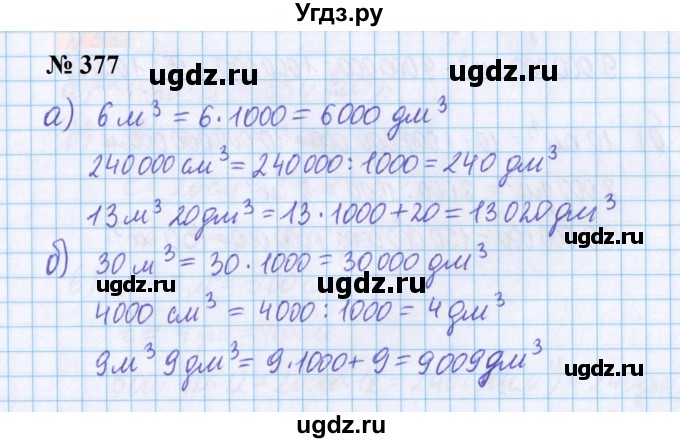 Угдз.ру
№ 377
ugdz.ru ugdz.ru
а) 6 м³ = 6 · 1000 = 6000 дм³
240000 см³ = 240000 : 1000 = 240 дм³
ugdz.ru ugdz.ru
13 м³ 20 дм³ = 13 · 1000 + 20 = 13020 дм³
б) 30 м³ = 30 · 1000 = 30000 дм³
ugdz.ru ugdz.ru
4000 см³ = 4000 : 1000 = 4 дм³
9 м³ 9 дм³ = 9 · 1000 + 9 = 9009 дм³
ugdz.ru ugdz.ru